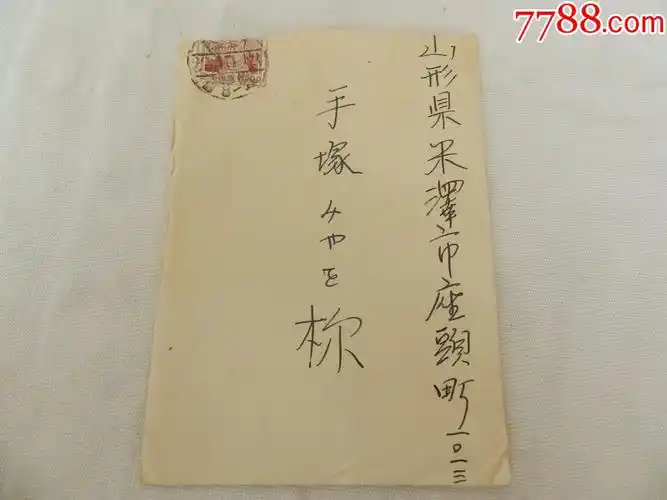 7788.com
山形県米澤市座頭町一〇一三
手塚みやを様